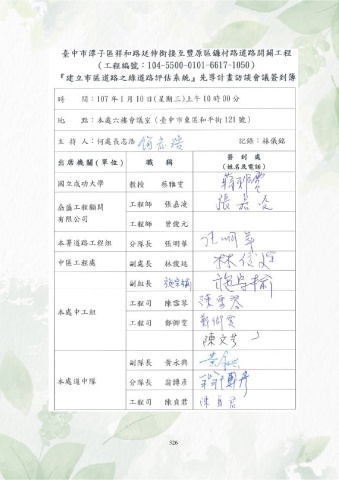 臺中市潭子區祥和路延伸銜接至豐原區鎌村路道路開闢工程
(工程編號：104-5500-0101-6617-1050)
『建立市區道路之綠道路評估系統』先導計畫訪談會議簽到簿
時 間：107年1月10日(星期三)上午10時00分
地 點：本處六樓會議室(臺中市東區和平街121號)
主 持 人：何處長志浩 何志浩 記錄：林儀銘
出席機關(單位) 職 稱 簽 到 處
(姓名及電話)
國立成功大學 教授 蔡雅雯
鼎盛工程顧問
有限公司
工程師 張嘉凌 張嘉凌
工程師 曾俊元
本署道路工程組 分隊長 張明華
中區工程處 副處長 林俊廷
本處中工組
副組長 施宗綸 施宗綸
工程司 陳雪琴 陳雪琴
工程司 鄭卿雯 鄭卿雯
陳文芳
本處道中隊
副隊長 黃永興
分隊長 翁溥彥
工程司 陳貞君 陳貞君
326